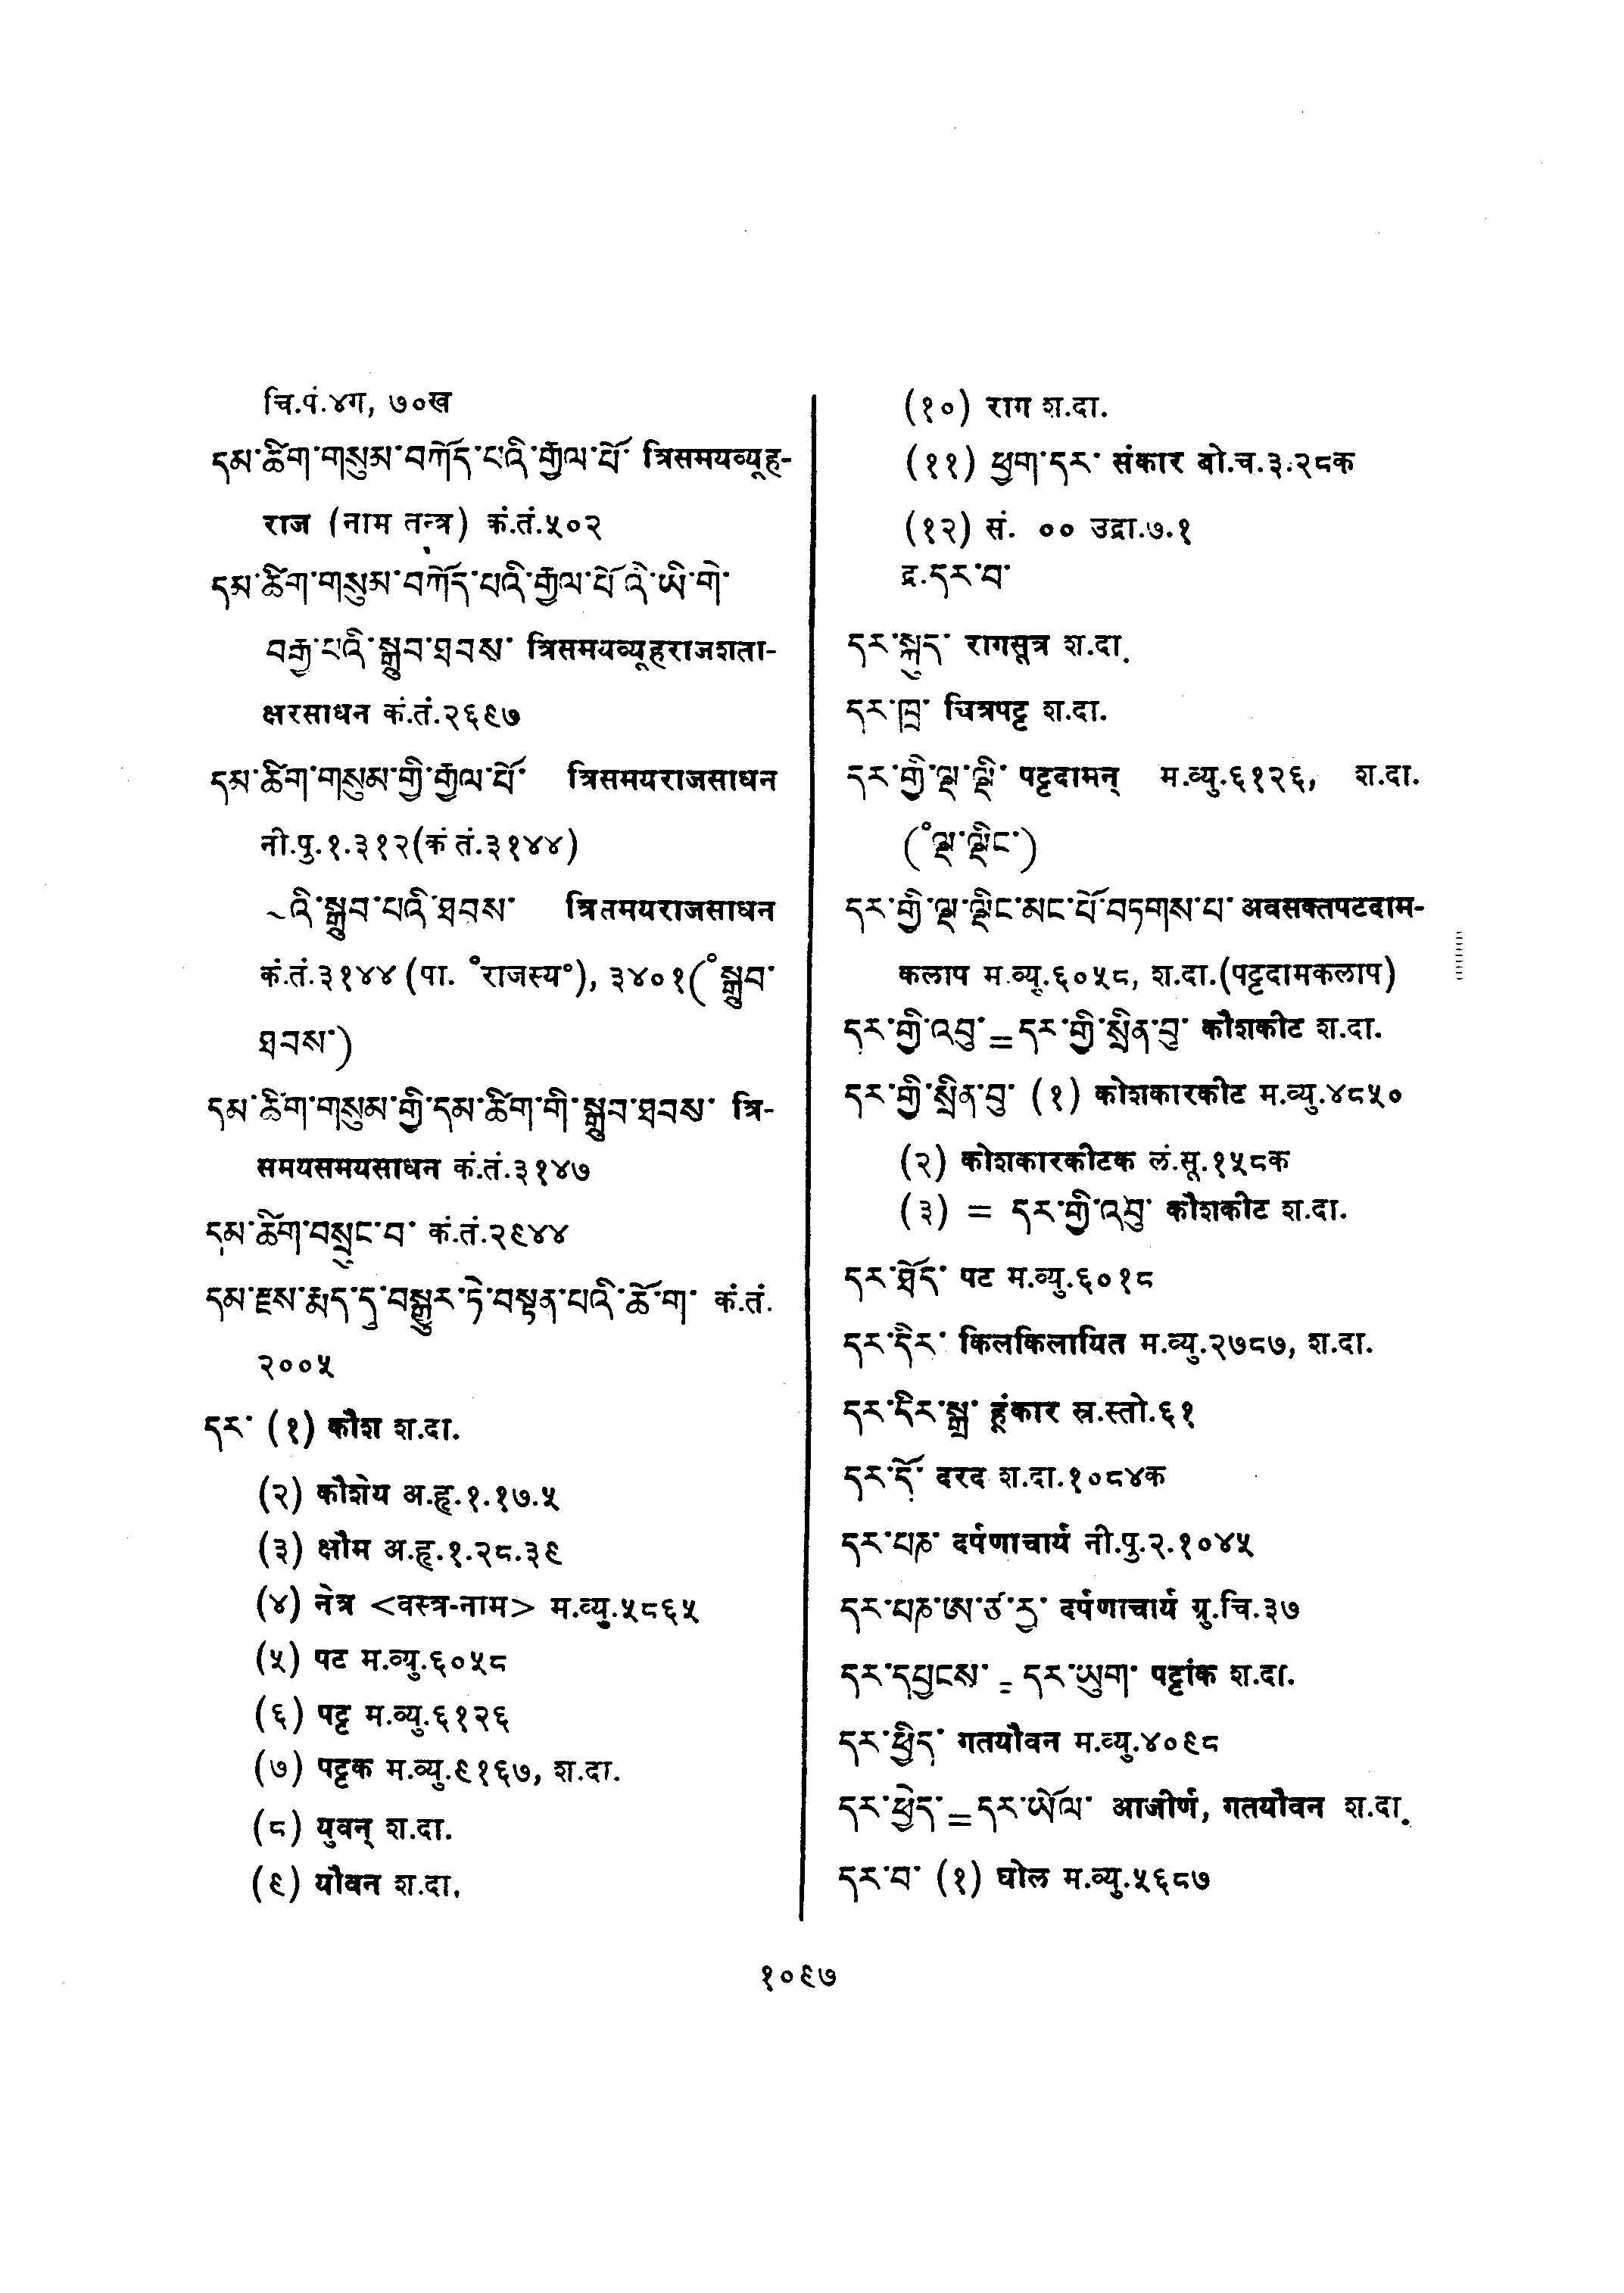 चि.पं.४ग, ७०ख
དམ་ཚིག་གསུམ་བཀོད་པའི་རྒྱལ་པོ་ त्रिसमयव्यूह-
राज (नाम तन्त्र) कं.तं.५०२
དམ་ཚིག་གསུམ་བཀོད་པའི་རྒྱལ་པོའི་ཡི་གེ་
བརྒྱ་པའི་སྒྲུབ་ཐབས་ त्रिसमयव्यूहराजशता-
क्षरसाधन कं.तं.२६९७
དམ་ཚིག་གསུམ་གྱི་རྒྱལ་པོ་ त्रिसमयराजसाधन
नी.पु.१.३१२(कं तं.३१४४)
~འི་སྒྲུབ་པའི་ཐབས་ त्रितमयराजसाधन
कं.तं.३१४४ (पा. °राजस्य°), ३४०१(°སྒྲུབ་
ཐབས་)
དམ་ཚིག་གསུམ་གྱི་དམ་ཚིག་གི་སྒྲུབ་ཐབས་ त्रि-
समयसमयसाधन कं.तं.३१४७
དམ་ཚིག་བསྲུང་བ་ कं.तं.२९४४
དམ་རྫས་རྨད་དུ་བསྒྱུར་ཏེ་བསྟན་པའི་ཆོ་ག་ कं.तं.
२००५
དར་ (१) कौश श.दा.
(२) कौशेय अ.हृ.१.१७.५
(३) क्षौम अ.हृ.१.२८.३९
(४) नेत्र <वस्त्र-नाम> म.व्यु.५८६५
(५) पट म.व्यु.६०५८
(६) पट्ट म.व्यु.६१२६
(७) पट्टक म.व्यु.९१६७, श.दा.
(८) युवन् श.दा.
(९) यौवन श.दा.
(१०) राग श.दा.
(११) ཕྱག་དར་ संकार बो.च.३.२८क
(१२) सं. ०० उद्रा.७.१
द्र.དར་བ་
དར་སྐུད་ रागसूत्र श.दा.
དར་ཁྲ་ चित्रपट्ट श.दा.
དར་གྱི་ལྡ་ལྡི་ पट्टदामन् म.व्यु.६१२६, श.दा.
(°ལྡ་ལྡིང་)
དར་གྱི་ལྡ་ལྡིང་མང་པོ་བཏགས་པ་ अवसक्तपटदाम-
कलाप म.व्यु.६०५८, श.दा.(पट्टदामकलाप)
དར་གྱི་འབུ་=དར་གྱི་སྲིན་བུ་ कौशकीट श.दा.
དར་གྱི་སྲིན་བུ་ (१) कोशकारकीट म.व्यु.४८५०
(२) कोशकारकीटक लं.सू.१५८क
(३) = དར་གྱི་འབུ་ कौशकीट श.दा.
དར་ཐོད་ पट म.व्यु.६०१८
དར་དིར་ किलकिलायित म.व्यु.२७८७, श.दा.
དར་དིར་སྒྲ་ हूंकार स्र.स्तो.६१
དར་དོ་ दरद श.दा.१०८४क
དར་པཎ་ दर्पणाचार्य नी.पु.२.१०४५
དར་པཎ་ཨ་ཙ་རྱ་ दर्पणाचार्य ग्रु.चि.३७
དར་དཔྱངས་ = དར་ཡུག་ पट्टांक श.दा.
དར་ཕྱིད་ गतयौवन म.व्यु.४०९८
དར་ཕྱེད་=དར་ཡོལ་ आजीर्ण, गतयौवन श.दा.
དར་བ་ (१) घोल म.व्यु.५६८७
१०९७